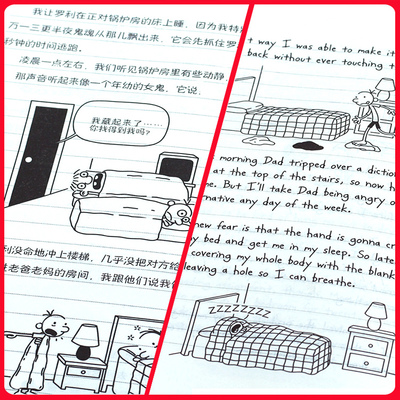 我让罗利在正对锅炉房的床上睡，因为我特
万一三更半夜鬼魂从那儿飘出来，它会先抓住罗
秒钟的时间逃跑。
凌晨一点左右，我们听见锅炉房里有些动静
那声音听起来像一个年幼的女鬼，它说
我藏起来了……
你找得到我吗？
利没命地冲上楼梯，几乎没把对方给
进老爸老妈的房间，我跟他们说我
t way I was able to make it
back without ever touching t
morning Dad tripped over a dictio
at the top of the stairs, so now h
me. But I'll take Dad being angry o
rnative any day of the week.
new fear is that the hand is gonna cr
y bed and get me in my sleep. So late
covering my whole body with the blank
leaving a hole so I can breathe.
ZZZZZZZZ